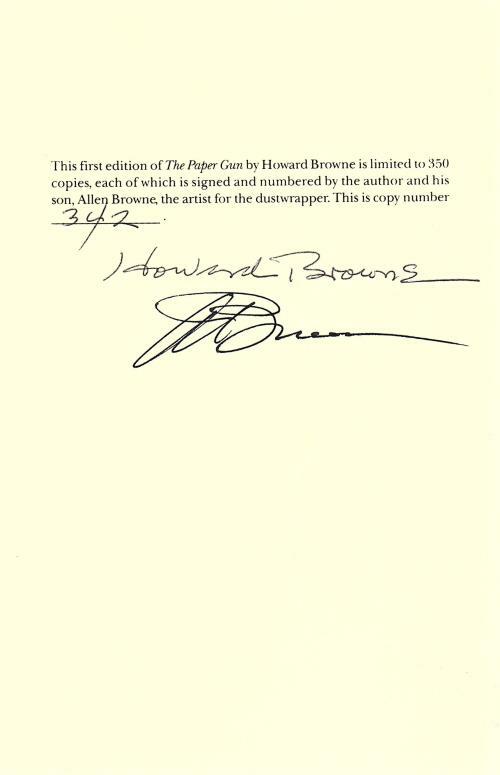 This first edition of The Paper Gun by Howard Browne is limited to 350
copies, each of which is signed and numbered by the author and his
son, Allen Browne, the artist for the dustwrapper. This is copy number
342.
Howard Browne